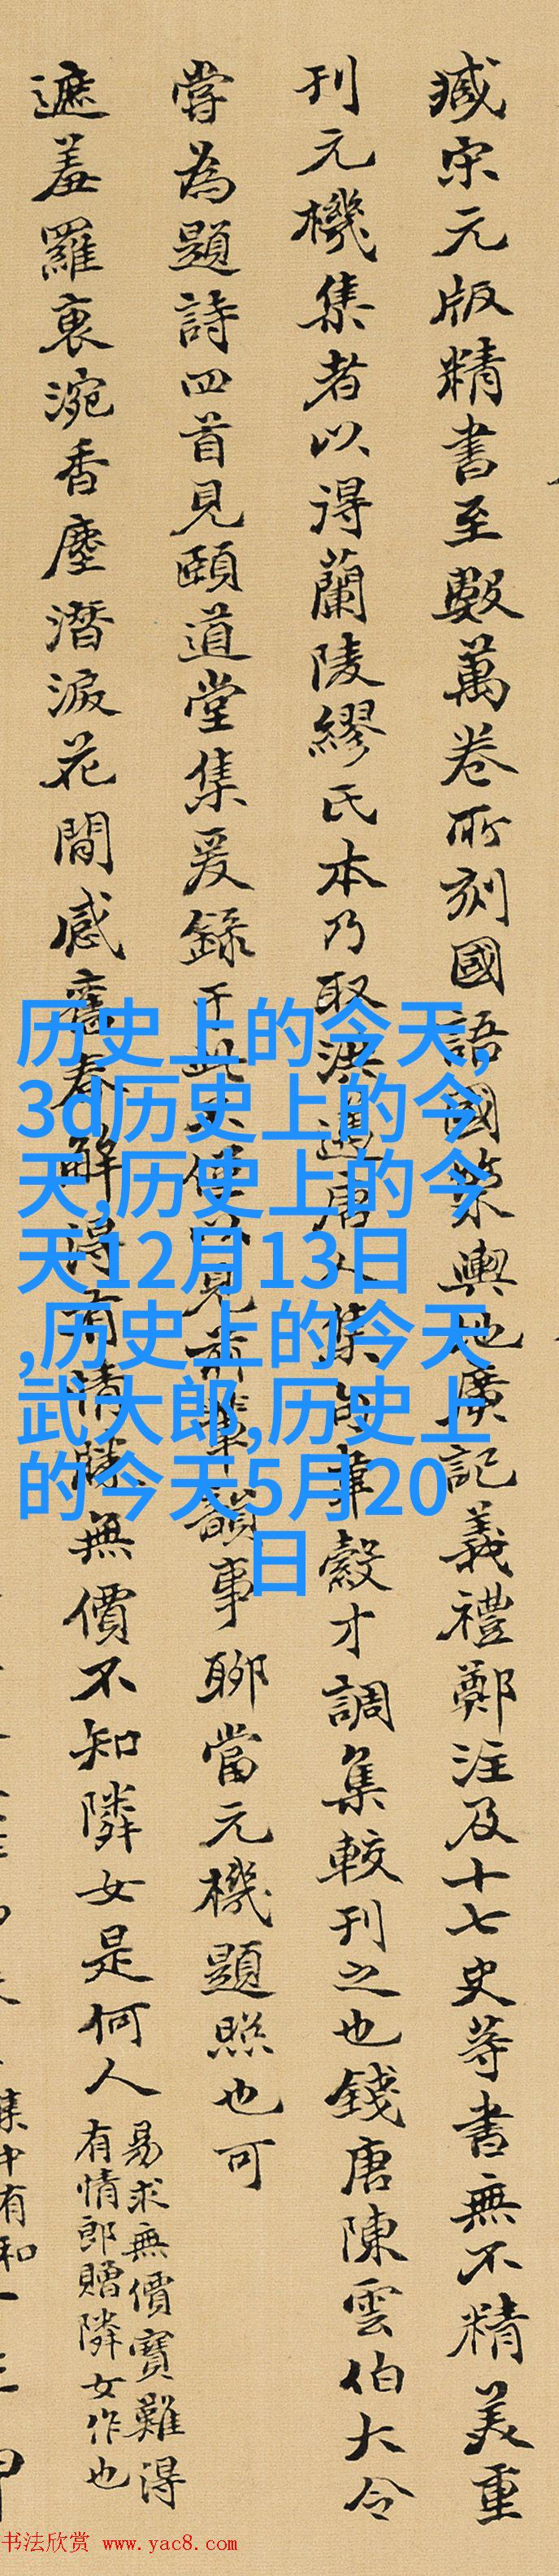 臧宋元版精書至數萬卷所刻國語國策輿地廣記義禮鄭注及十七史等書無不精美重
刊元機集者以得蘭陵繆氏本乃取洪邁唐人集句韋縠才調集較刊之也錢唐陳雲伯大令
嘗為題詩四首見頤道堂集爰錄于此以見前輩韻事聊當元機題照也可
遮羞羅裹涴香塵潛淚花間感舊春解得有情勝無價不知隣女是何人
易求無價寶難得
有情郎贈隣女作也
集中有和
历史上的今天,
3d历史上的今
天,历史上的今
天12月13日
,历史上的今天
武大郎,历史上
的今天5月20
日
书法欣赏 www.yac8.com